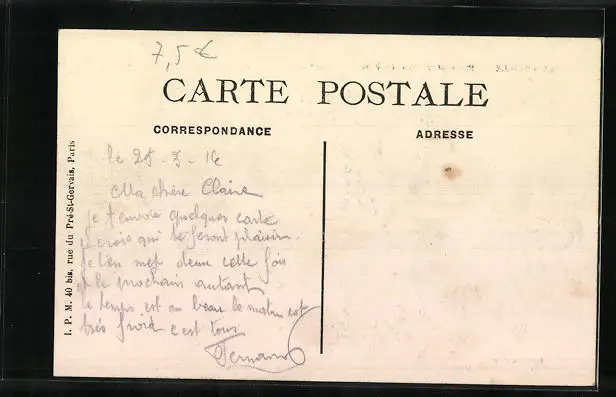 7,5 €
CARTE POSTALE
CORRESPONDANCE
ADRESSE
I. P. M. 40 bis, rue du Pré-St-Gervais, Paris
le 25-3-16
Ma chère Claire
je t'envoie quelques carte
je crois qui te feront plaisir
je t'en met deux cette fois
et le prochain autant
le temps est au beau le matin est
très froid c'est tous
Fernand